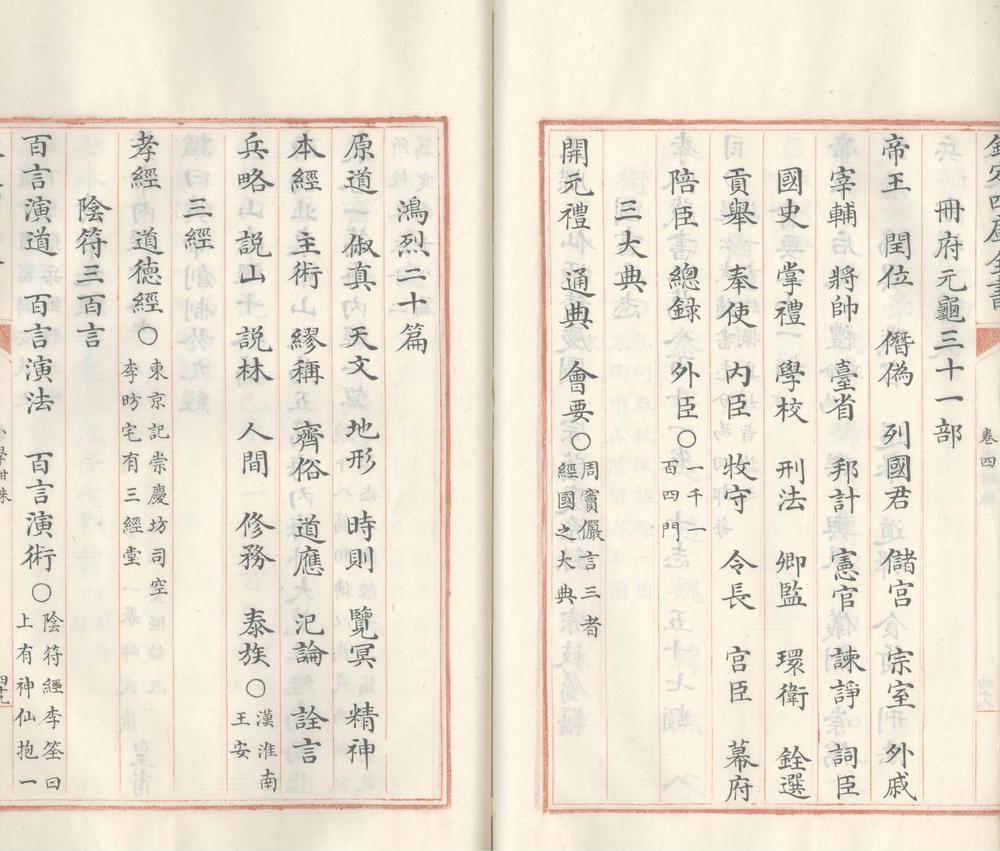 欽定四庫全書
冊府元龜三十一部
帝王 閏位 僭偽 列國君 儲宮 宗室 外戚
宰輔 將帥 臺省 邦計 憲官 諫諍 詞臣
國史 掌禮 學校 刑法 卿監 環衛 銓選
貢舉 奉使 內臣 牧守 令長 宮臣 幕府
陪臣 總録 外臣〇一千一百四門
三大典
開元禮 通典 會要〇周竇儼言三者經國之大典
卷四
鴻烈二十篇
原道 俶真 天文 地形 時則 覽冥 精神
本經 主術 繆稱 齊俗 道應 氾論 詮言
兵略 説山 説林 人間 修務 泰族〇漢淮南王安
三經
孝經 道德經〇東京記崇慶坊司空李昉宅有三經堂
陰符三百言
百言演道 百言演法 百言演術〇陰符經李筌曰上有神仙抱一